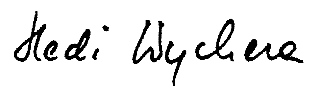 Hedi Wychera